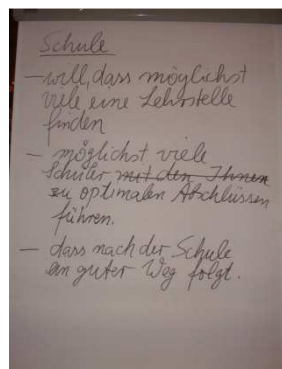 Schule
– will, dass möglichst
viele eine Lehrstelle
finden
– möglichst viele
Schüler mit den Ihnen
zu optimalen Abschlüssen
führen.
– dass nach der Schule
ein guter Weg folgt.